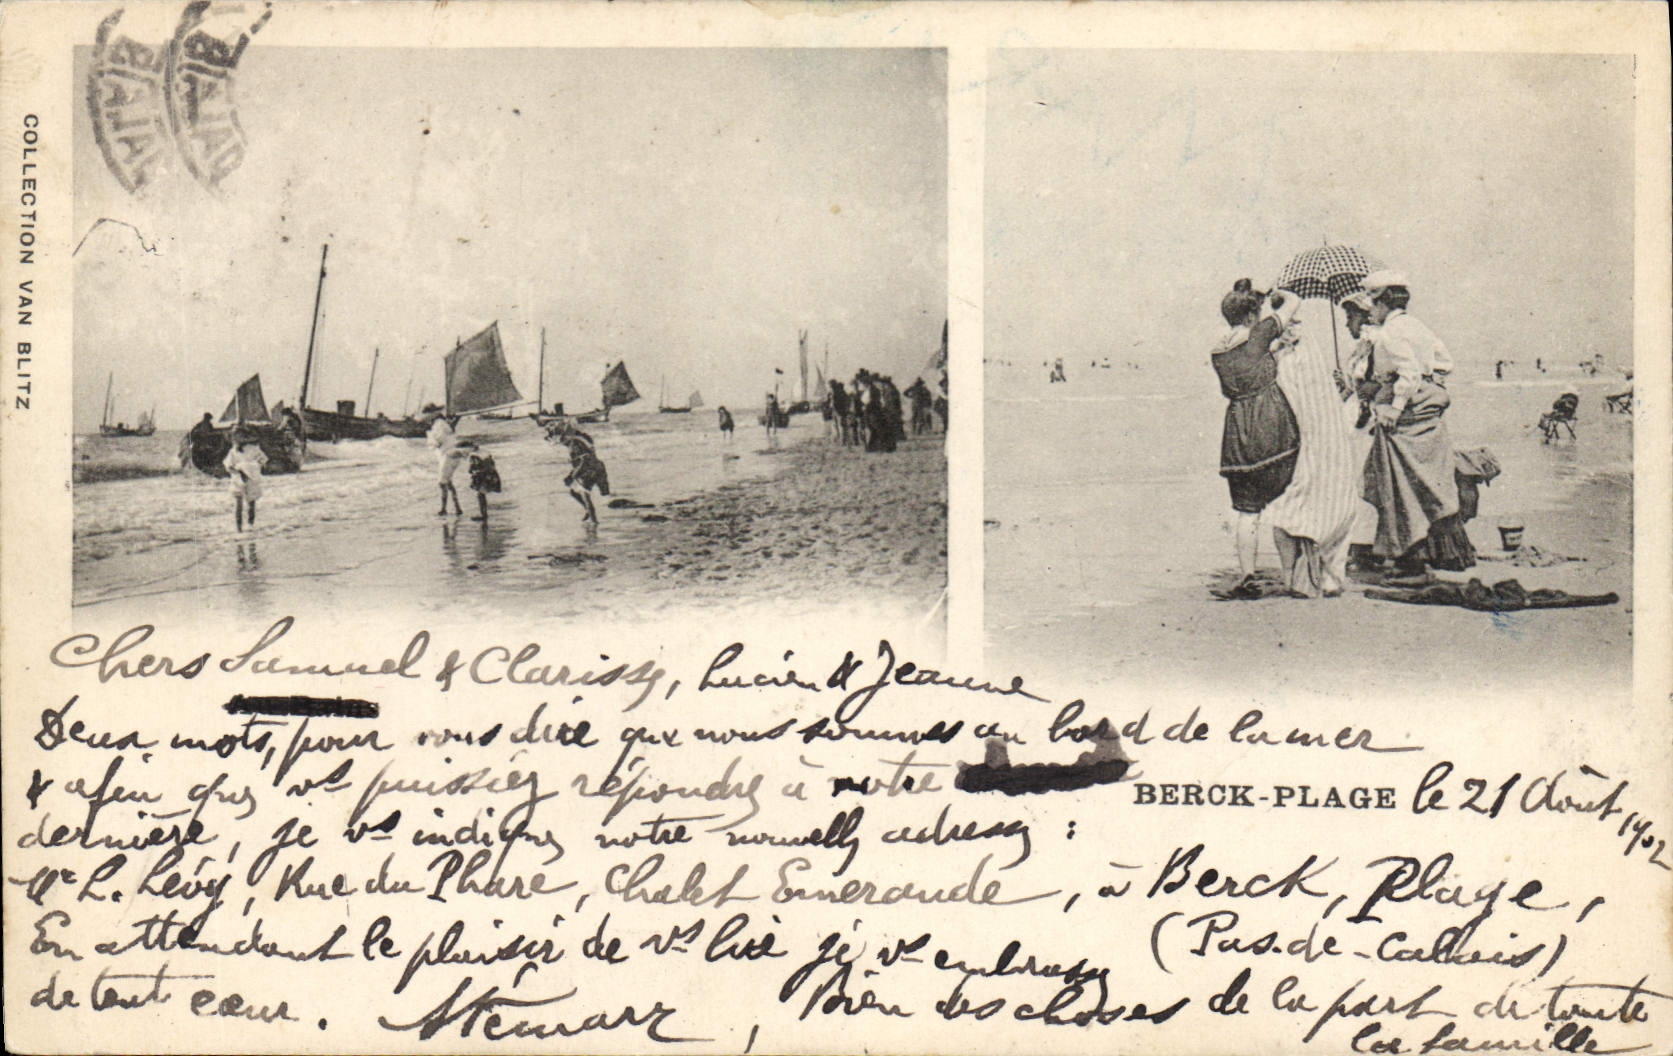 COLLECTION VAN BLITZ
Chers Samuel & Clarisse, Lucien & Jeanne
Deux mots, pour vous dire que nous sommes au bord de la mer
& afin que vs puissiez répondre à notre
BERCK-PLAGE le 21 Août 1902
dernière, je vs indique notre nouvelle adresse :
Mr L. Lévy, Rue du Phare, Chalet Emeraude, à Berck, Plage,
(Pas-de-Calais)
En attendant le plaisir de vs lire je vs embrasse
de tout cœur.
, Bien des choses de la part de toute
la famille